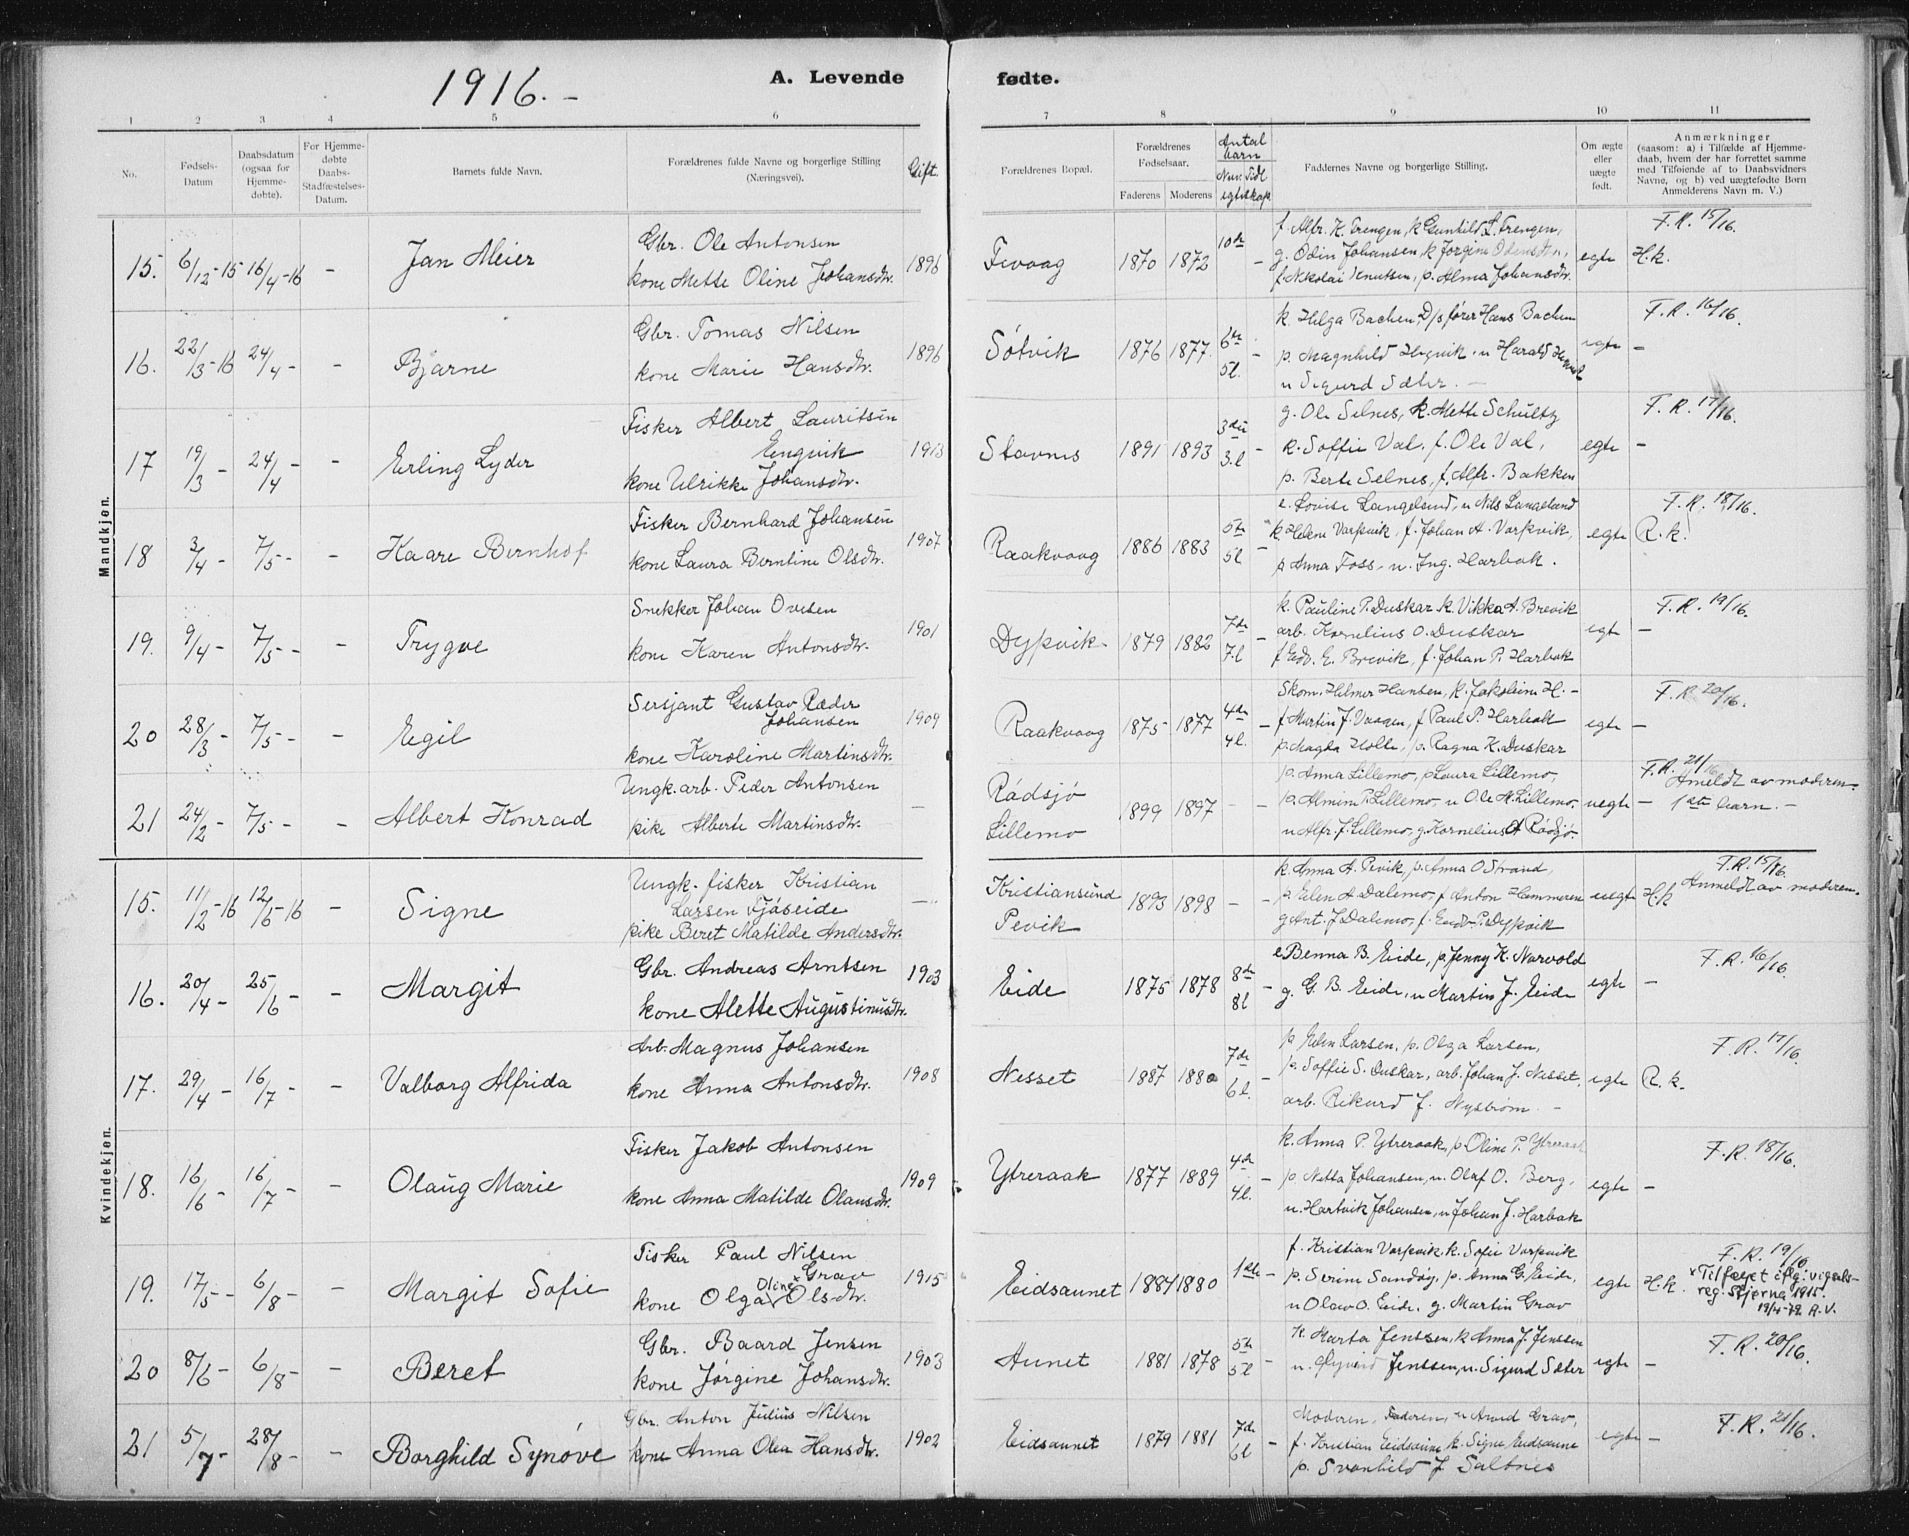 1916. -
A. Levende fødte.
1 2 3 4 5 6 7 8 9 10 11
No.
Fødsels-Datum
Daabsdatum (ogsaa for Hjemmedøbte).
For Hjemmedøbte Daabs-Stadfæstelses-Datum.
Barnets fulde Navn.
Forældrenes fulde Navne og borgerlige Stilling (Næringsvei).
Gift.
Forældrenes Bopæl.
Forældrenes Fødselsaar.
Faderens Moderens
Antal barn
Nuv. Tidl
egteskap
Faddernes Navne og borgerlige Stilling.
Om ægte eller uægte født.
Anmærkninger
(saasom: a) i Tilfælde af Hjemmedaab, hvem der har forrettet samme med Tilføiende af to Daabsvidners Navne, og b) ved uægtefødte Børn Anmelderens Navn m. V.)
Mandkjøn.
15. 6/12-15 16/4-16 - Jan Meier
Gbr. Ole Antonsen
kone Mette Oline Johansdtr.
1896 Fevaag 1870 1872 10de -
f. Albr. K. Frengen, k Gunhild L. Frengen,
g. Odin Johansen, k Jorgine Odinsdtr,
f. Nikolai Knutsen, p. Alma Johansdtr.
egte H.k. F.R. 15/16.
16. 22/3-16 24/4- - Bjarne
Gbr. Tomas Nilsen
kone Marie Hansdtr.
1896 Sötvik 1876 1877. 6te 5l. -
k. Helga Bachen, D/s fører Hans Bachen
p. Magnhild Hegvik, u Harald Hegvik
u Sigurd Sæter. -
egte - F.R. 16/16.
17 19/3- 24/4- - Erling Lyder
Fisker Albert Lauritsen
Engvik
kone Ulrikke Johansdtr.
1913 Stavnes 1891 1893 3die 3.l -
g. Ole Selnes, k. Mette Schultz
k. Soffie Val, f. Ole Val,
p. Berte Selnes, f. Alfr. Bakken
egte - F.R. 17/16.
18 3/4- 7/5- - Kaare Bernhof
Fisker Bernhard Johansen
kone Laura Berntine Olsdtr.
1907 Raakvaag 1886 1883 5te 5l -
e. Lovise Langelund, u Nils Langeland
k Helene Varpvik, f. Johan A. Varpvik,
p Anna Foss, u. Ing. Harbak.
egte R.k. F.R. 18/16.
19. 9/4- 7/5- - Trygve
Snekker Johan Ovesen
kone Karen Antonsdtr.
1901 Dypvik 1879 1882 7de 7.l -
k. Pauline P. Duskar k. Vikka A. Brevik
arb. Kornelius O. Duskar
f Edv. E. Brevik, f. Johan P. Harbak
egt - F.R. 19/16.
20 28/3- 7/5- - Egil
Sersjant Gustav Ræder
Johansen
kone Karoline Martinsdtr.
1909 Raakvaag 1875 1877 4de 4l. -
Skom. Helmer Hansen, k. Jakobine H. -
f Martin J. Vaagen, f Paul P. Harbak
p. Magda Holte, p. Ragna K. Duskar
egte - F.R. 20/16.
21 24/2- 7/5- - Albert Konrad
Ungk. arb. Peder Antonsen
pike Alberte Martinsdtr.
- Rödsjö
Lillemo
1899 1897 - -
p. Anna Lillemo, p Laura Lillemo,
p. Almine P. Lillemo, u Ole M. Lillemo,
u Alfr. J. Lillemo, g. Kornelius A Rödsjö.
uegte - F.R. 21/16
Anmeldt av moderen -
1ste barn. -
Kvindekjøn.
15. 11/2-16 12/6-16 - Signe
Ungk. fisker Kristian
Larsen Fjöseide
pike Beret Matilde Andersdtr.
- Kristiansund
Pevik
1893 1898 - -
k. Anna A. Pevik, p. Anna O Strand,
p Elen A. Dalemo, f Anton Hammeren
g Ant. J. Dalemo, f. Edv. P. Dypvik
uegte H.k F.R. 15/16.
Anmeldt av moderen.
16. 20/4- 25/6- - Margit
Gbr. Andreas Arntsen
kone Alette Augustinusdtr.
1903 Eide 1875 1878 8de 8l -
e Benna B. Eide, p. Jenny K. Norvold
g. G. B. Eide, u Martin J. Eide
egte - F.R. 16/16.
17. 29/4- 16/7- - Valborg Alfrida
Arb. Magnus Johansen
kone Anna Antonsdtr.
1908 Nesset 1887 1880 7de 6l. -
p Elen Larsen, p. Olga Larsen,
p. Soffie S. Duskar, arb. Johan J. Nesset,
arb. Rikard J. Nyström -
egte R.k. F.R. 17/16.
18. 16/6- 16/7- - Olaug Marie
Fisker Jakob Antonsen
kone Anna Matilde Olausdtr.
1909 Ytreraak 1877 1889 4de 4l. -
k. Anna P. Ytreraak, p Oline P. Ytreraak
p. Netta Johansen, u. Olaf O. Berg,
u. Hartvik Johansen, u Johan J. Harbak
egte - F.R. 18/16.
19. 17/5- 6/8- - Margit Sofie
Fisker Paul Nilsen
Grav
kone Olga Oline× Olsdtr.
1915 Eidsaunet 1884 1880 1ste -
f. Kristian Varpvik, k. Sofie Varpvik
p. Serine Sandøy, p. Anna G. Eide,
u Olav O. Eide, g. Martin Grav
egte H.k. F.R. 19/16
×Tilføiet iflg. vigsels-
reg. Stjørna 1915.
19/4-72 A.V.
20 8/6- 6/8- - Beret
Gbr. Baard Jensen
kone Jørgine Johansdtr.
1903 Aunet 1881 1878 5te 5l -
k. Marta Jenssen, k Anna J. Jenssen
u. Øyvind Jenssen, u. Sigurd Sæter
egte - F.R. 20/16.
21 5/7- 28/8- - Borghild Synöve
Gbr. Anton Julius Nilsen
kone Anna Olea Hansdtr.
1902 Eidsaunet 1879 1881 7de 6l -
Moderen, Faderen, u Arvid Grav,
f. Kristian Eidsaune k. Signe Eidsaune
p. Svanhild J Saltnes
egte - F.R. 21/16.